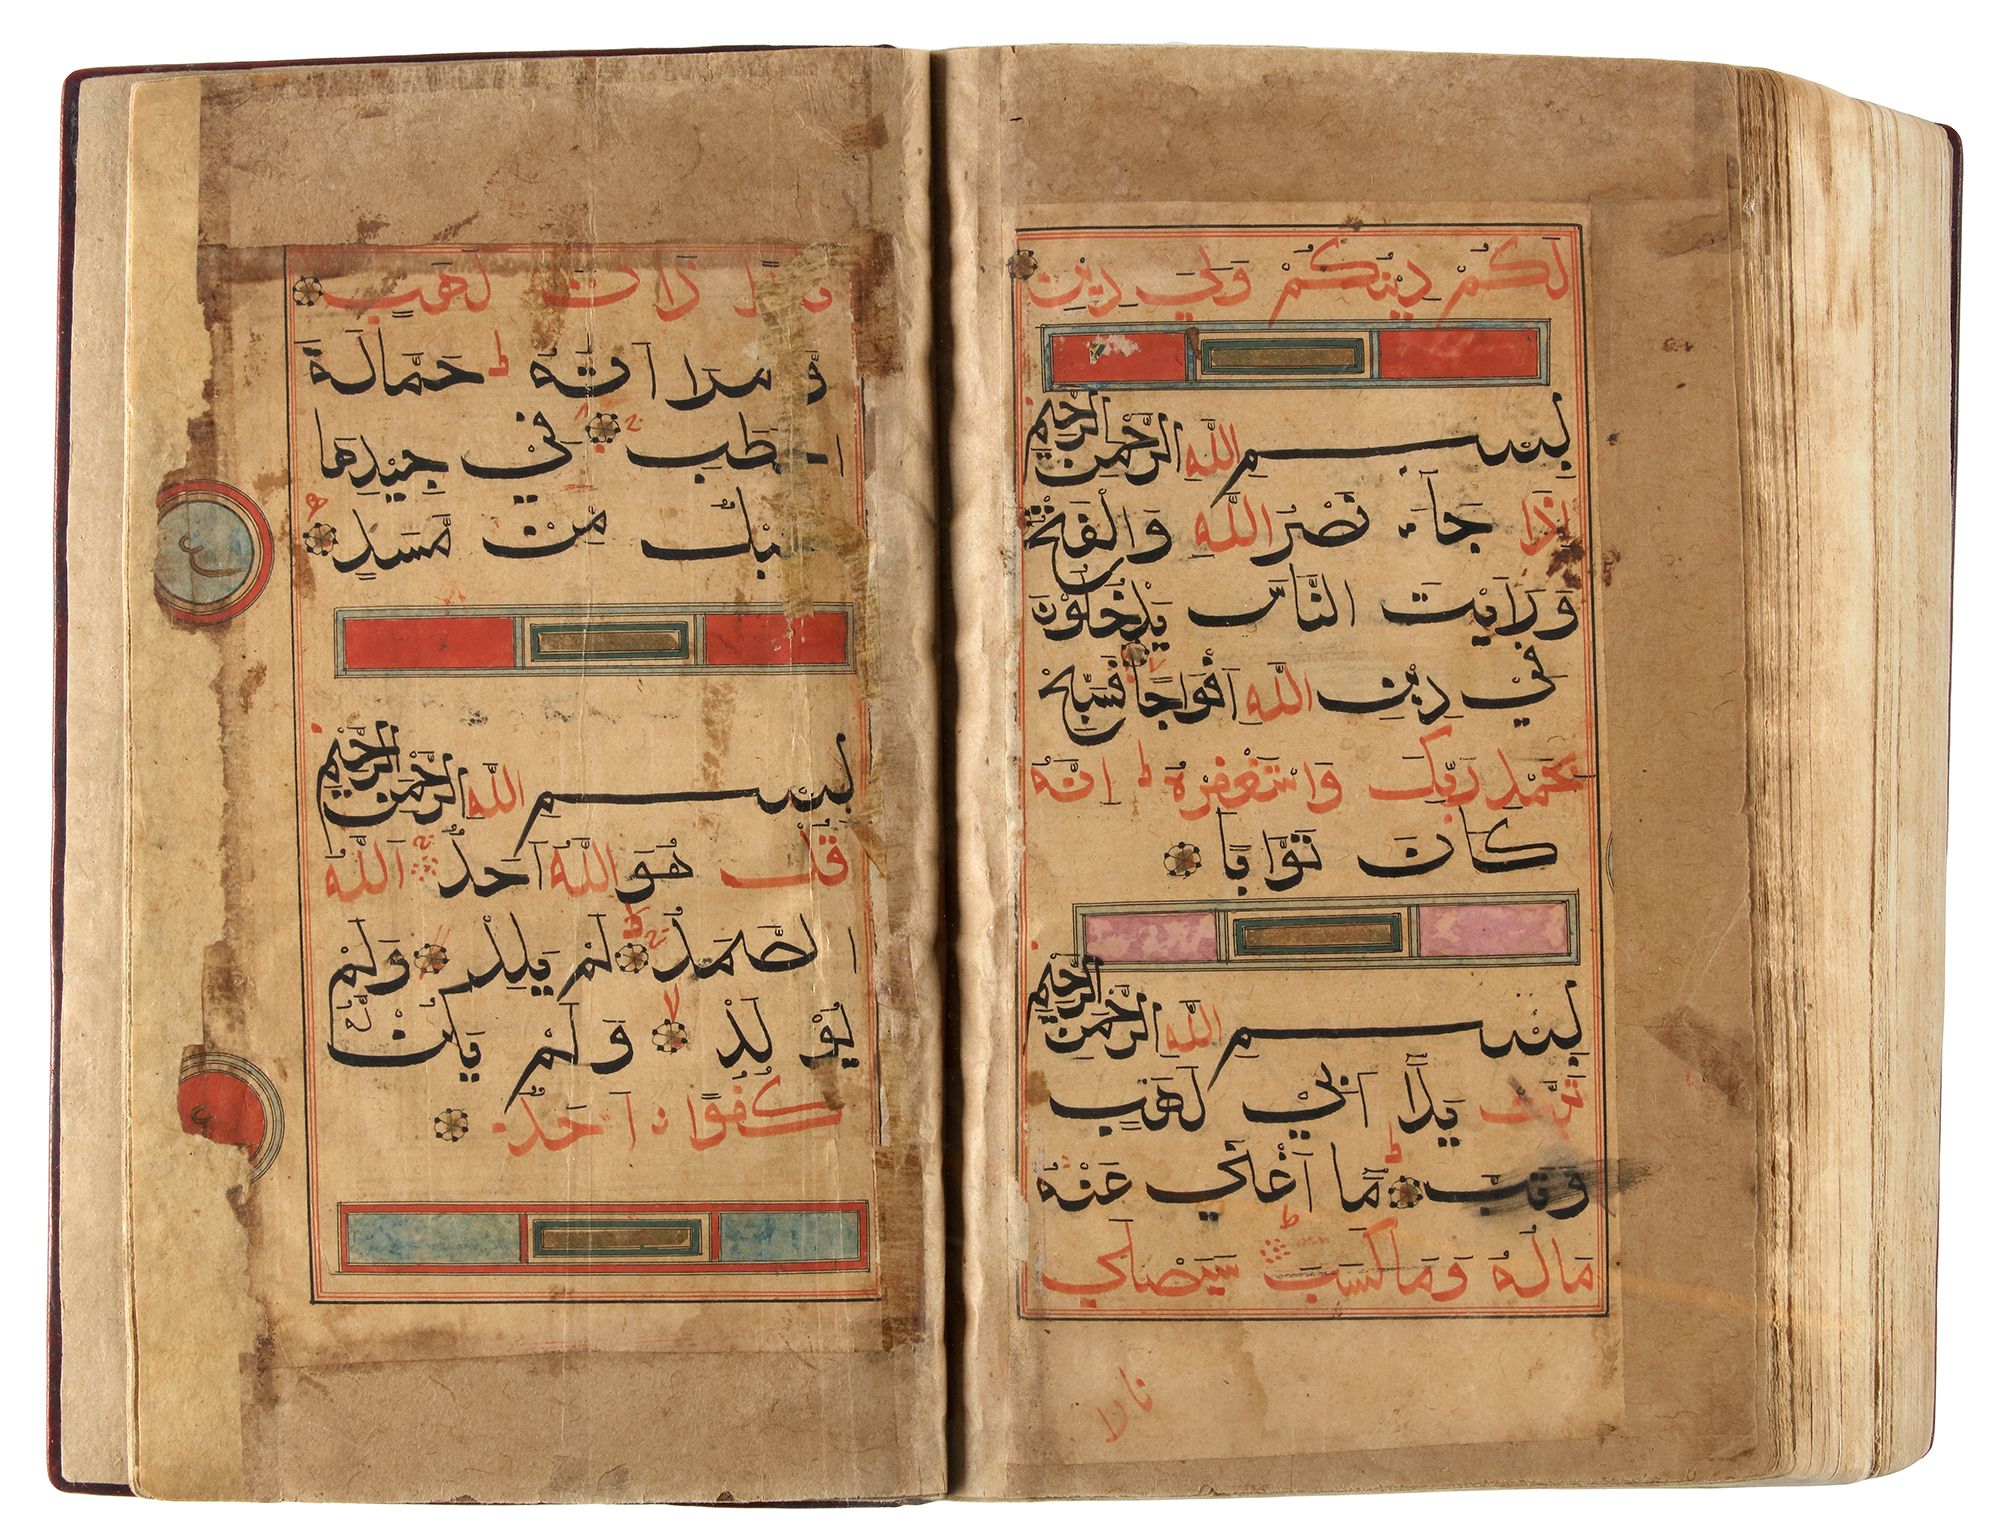 لَكُمْ دِينُكُمْ وَلِيَ دِينِ
بِسْمِ اللَّهِ الرَّحْمٰنِ الرَّحِيمِ
إِذَا جَآءَ نَصْرُ اللَّهِ وَالْفَتْحُ
وَرَاَيْتَ النَّاسَ يَدْخُلُوْنَ
فِيْ دِيْنِ اللَّهِ اَفْوَاجًا فَسَبِّحْ
بِحَمْدِ رَبِّكَ وَاسْتَغْفِرْهُ ط اِنَّهُ
كَانَ تَوَّابًا
بِسْمِ اللَّهِ الرَّحْمٰنِ الرَّحِيمِ
تَبَّتْ يَدَآ اَبِيْ لَهَبٍ
وَتَبَّ مَّا اَغْنٰي عَنْهُ
مَالُهُ وَمَا كَسَبَ ط سَيَصْلٰي
نارا
ذَاتَ لَهَبٍ
وَّامْرَاَتُهُ ط حَمَّالَةَ
الْحَطَبِ فِيْ جِيْدِهَا
حَبْلٌ مِّنْ مَّسَدٍ
بِسْمِ اللَّهِ الرَّحْمٰنِ الرَّحِيمِ
قُلْ هُوَ اللَّهُ اَحَدٌ اَللَّهُ
الصَّمَدُ لَمْ يَلِدْ وَلَمْ
يُوْلَدْ وَلَمْ يَكُنْ لَّهُ
كُفُوًا اَحَدٌ